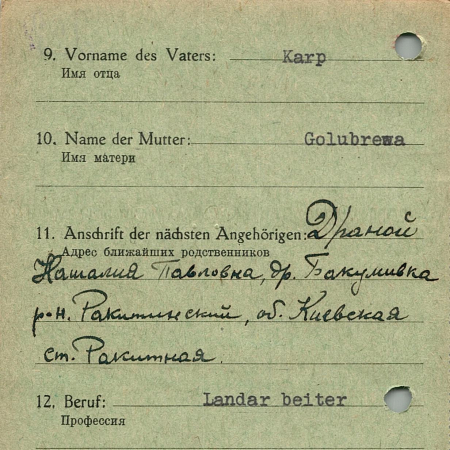 9. Vorname des Vaters: Karp
Имя отца
10. Name der Mutter: Golubrewa
Имя матери
11. Anschrift der nächsten Angehörigen: Драной
Адрес ближайших родственников
Наталия Павловна, др. Бакумивка
р-н. Ракитинский, об. Киевская
ст. Ракитная.
12. Beruf: Landar beiter
Профессия